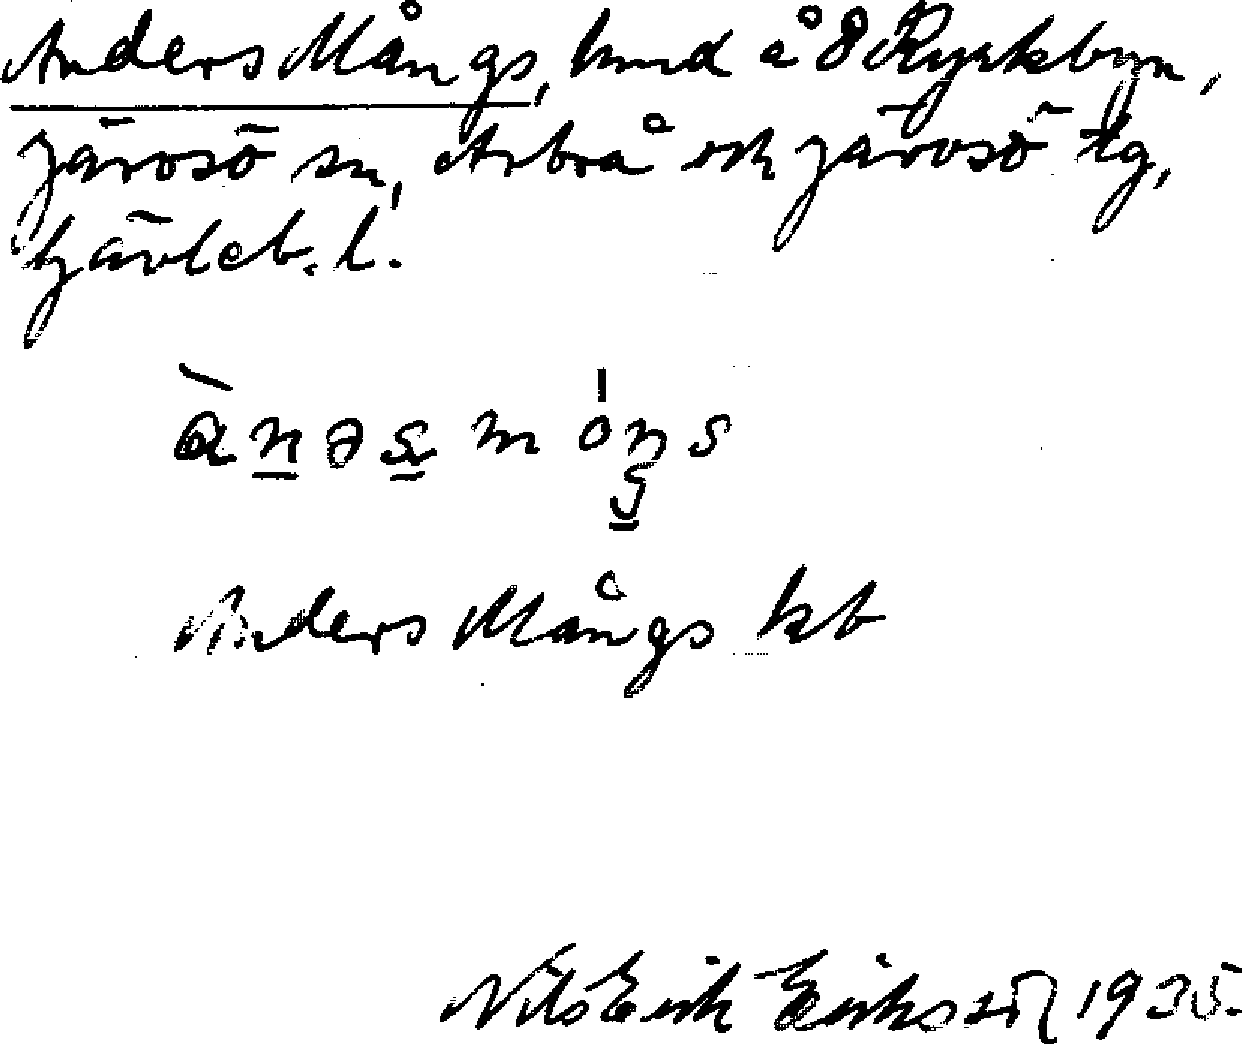 Anders Mångs, hmd å 8 Kyrkbyn,
Järvsö sn, Arbrå och Järvsö tg,
Gävleb. l.
ànəs móŋs
Anders Mångs kb
Nils Erik Eriksson 1935.